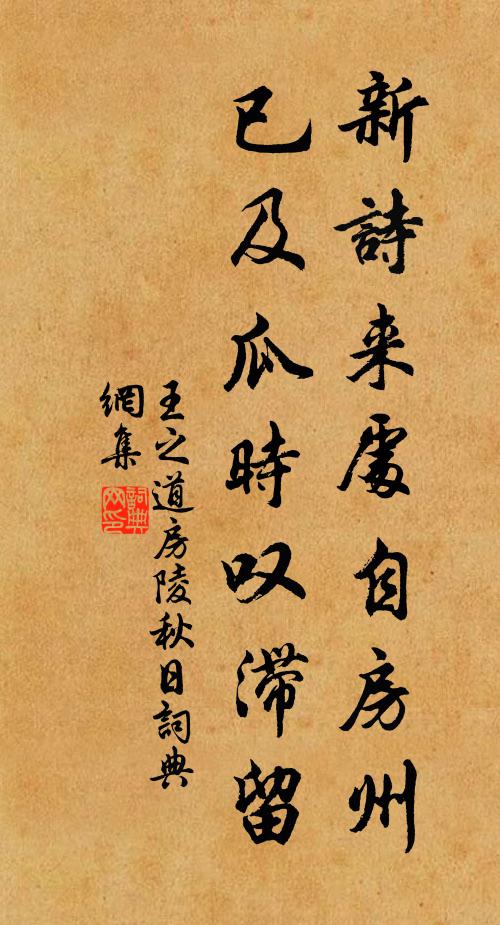 新詩来處自房州
已及瓜時叹滞留
王之道房陵秋日詞典
網集
詞典
网印